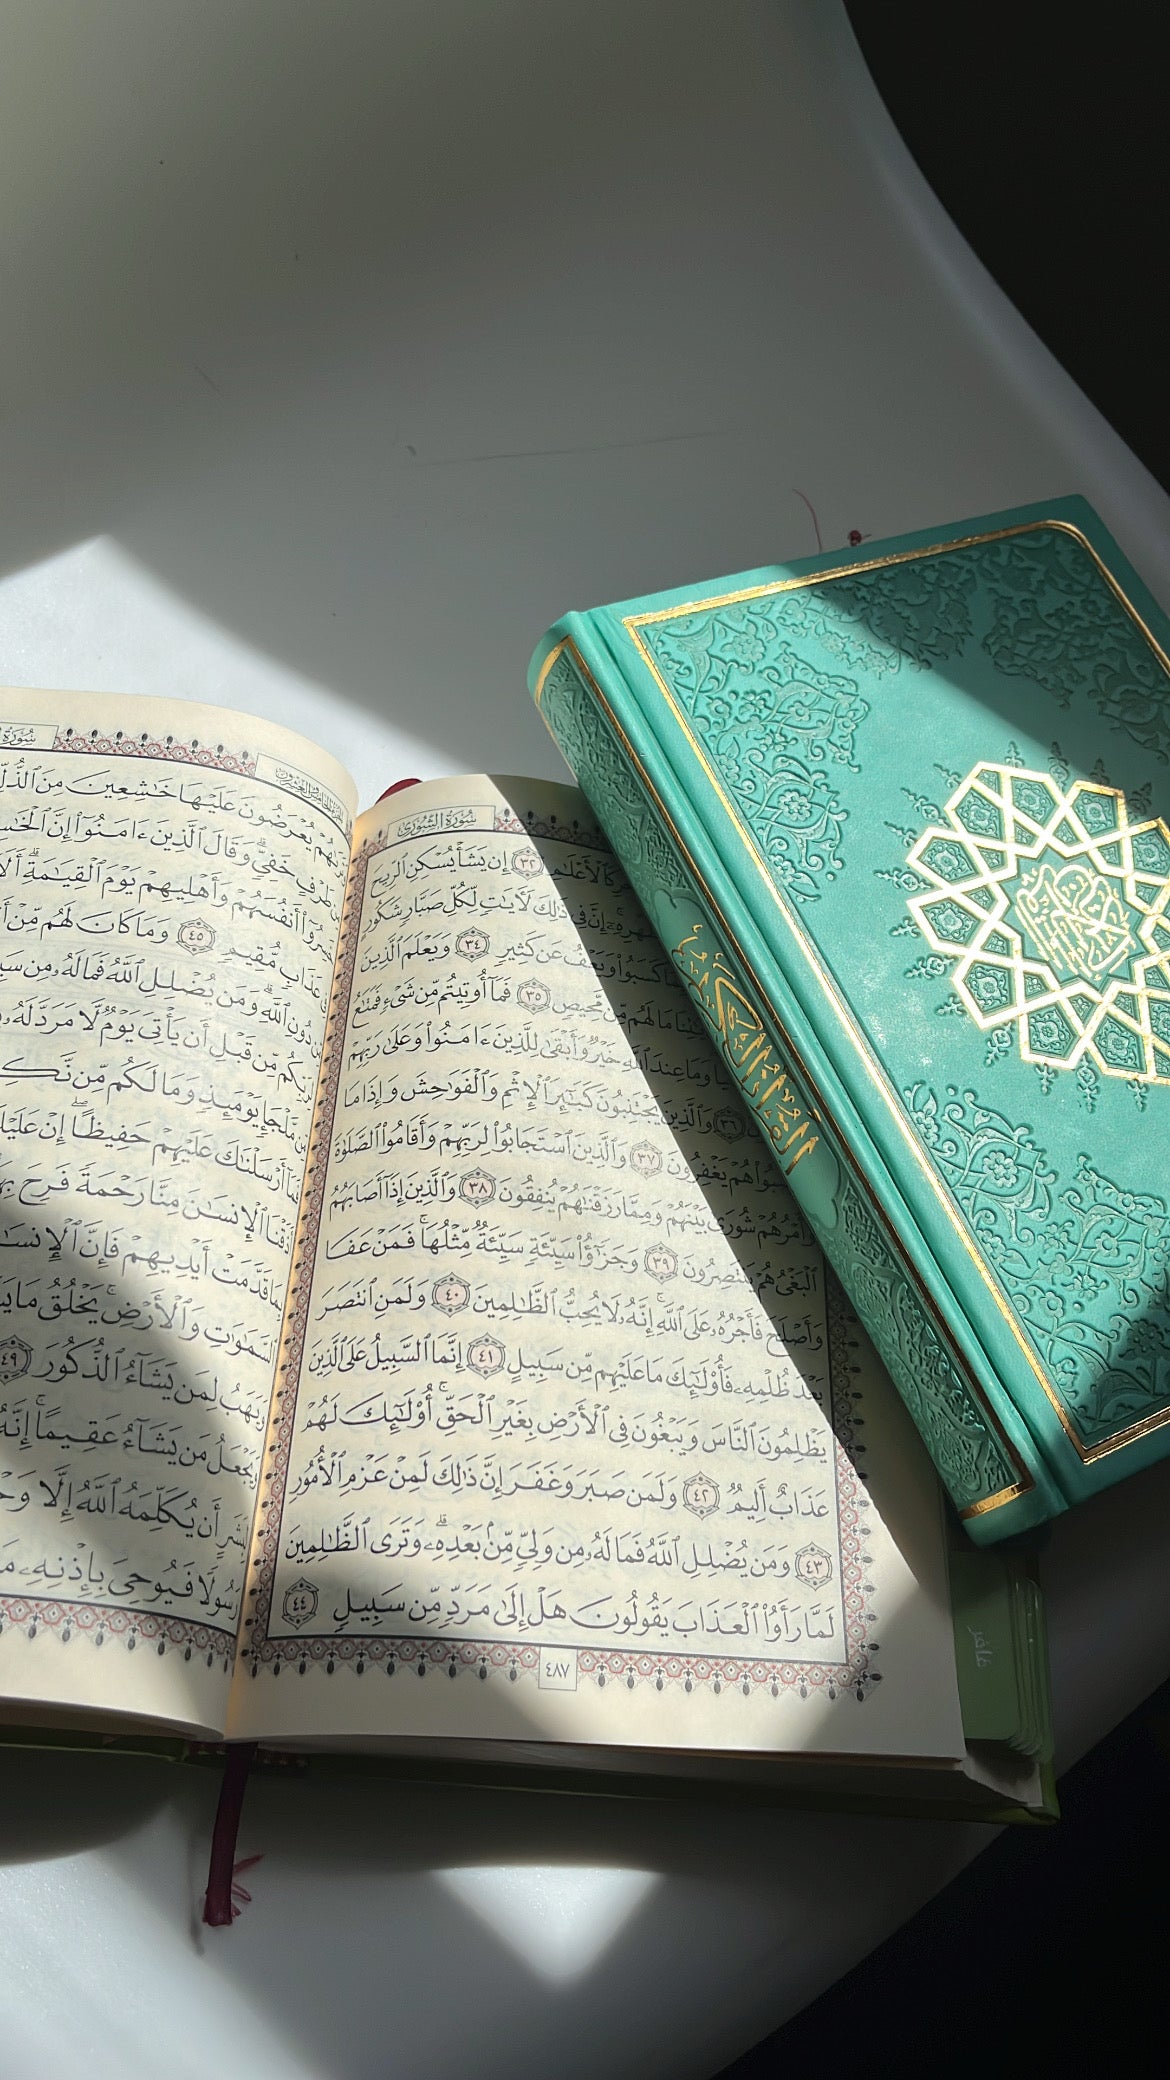 سُورَةُ الشُّورَىٰ
كَٱلْأَعْلَٰمِ ٣٢ إِن يَشَأْ يُسْكِنِ ٱلرِّيحَ
ظَهْرِهِۦٓ إِنَّ فِى ذَٰلِكَ لَأَيَٰتٍ لِّكُلِّ صَبَّارٍ شَكُورٍ
بِمَا كَسَبُوا۟ وَيَعْفُ عَن كَثِيرٍ ٣٤ وَيَعْلَمَ ٱلَّذِينَ
مَا لَهُم مِّن مَّحِيصٍ ٣٥ فَمَآ أُوتِيتُم مِّن شَىْءٍ فَمَتَٰعُ
وَمَا عِندَ ٱللَّهِ خَيْرٌ وَأَبْقَىٰ لِلَّذِينَ ءَامَنُوا۟ وَعَلَىٰ رَبِّهِمْ
٣٦ وَٱلَّذِينَ يَجْتَنِبُونَ كَبَٰٓئِرَ ٱلْإِثْمِ وَٱلْفَوَٰحِشَ وَإِذَا مَا
هُمْ يَغْفِرُونَ ٣٧ وَٱلَّذِينَ ٱسْتَجَابُوا۟ لِرَبِّهِمْ وَأَقَامُوا۟ ٱلصَّلَوٰةَ
وَأَمْرُهُمْ شُورَىٰ بَيْنَهُمْ وَمِمَّا رَزَقْنَٰهُمْ يُنفِقُونَ ٣٨ وَٱلَّذِينَ إِذَآ أَصَابَهُمُ
ٱلْبَغْىُ هُمْ يَنتَصِرُونَ ٣٩ وَجَزَٰٓؤُا۟ سَيِّئَةٍ سَيِّئَةٌ مِّثْلُهَا ۖ فَمَنْ عَفَا
وَأَصْلَحَ فَأَجْرُهُۥ عَلَى ٱللَّهِ ۚ إِنَّهُۥ لَا يُحِبُّ ٱلظَّٰلِمِينَ ٤٠ وَلَمَنِ ٱنتَصَرَ
بَعْدَ ظُلْمِهِۦ فَأُو۟لَٰٓئِكَ مَا عَلَيْهِم مِّن سَبِيلٍ ٤١ إِنَّمَا ٱلسَّبِيلُ عَلَى ٱلَّذِينَ
يَظْلِمُونَ ٱلنَّاسَ وَيَبْغُونَ فِى ٱلْأَرْضِ بِغَيْرِ ٱلْحَقِّ ۚ أُو۟لَٰٓئِكَ لَهُمْ
عَذَابٌ أَلِيمٌ ٤٢ وَلَمَن صَبَرَ وَغَفَرَ إِنَّ ذَٰلِكَ لَمِنْ عَزْمِ ٱلْأُمُورِ
٤٣ وَمَن يُضْلِلِ ٱللَّهُ فَمَا لَهُۥ مِن وَلِىٍّ مِّنۢ بَعْدِهِۦ ۗ وَتَرَى ٱلظَّٰلِمِينَ
لَمَّا رَأَوُا۟ ٱلْعَذَابَ يَقُولُونَ هَلْ إِلَىٰ مَرَدٍّ مِّن سَبِيلٍ ٤٤
٤٨٧
سُورَةُ
يُعْرَضُونَ عَلَيْهَا خَٰشِعِينَ مِنَ ٱلذُّلِّ
خَفِىٍّ ۗ وَقَالَ ٱلَّذِينَ ءَامَنُوٓا۟ إِنَّ
خَسِرُوٓا۟ أَنفُسَهُمْ وَأَهْلِيهِمْ يَوْمَ ٱلْقِيَٰمَةِ ۗ
عَذَابٍ مُّقِيمٍ ٤٥ وَمَا كَانَ لَهُم مِّنْ
دُونِ ٱللَّهِ ۗ وَمَن يُضْلِلِ ٱللَّهُ فَمَا لَهُۥ مِن
مِّن قَبْلِ أَن يَأْتِىَ يَوْمٌ لَّا مَرَدَّ لَهُۥ
مَّلْجَإٍ يَوْمَئِذٍ وَمَا لَكُم مِّن
فَمَآ أَرْسَلْنَٰكَ عَلَيْهِمْ حَفِيظًا ۖ إِنْ عَلَيْكَ
أَذَقْنَا ٱلْإِنسَٰنَ مِنَّا رَحْمَةً فَرِحَ بِهَا
بِمَا قَدَّمَتْ أَيْدِيهِمْ فَإِنَّ ٱلْإِنسَٰنَ
ٱلسَّمَٰوَٰتِ وَٱلْأَرْضِ ۚ يَخْلُقُ مَا
وَيَهَبُ لِمَن يَشَآءُ ٱلذُّكُورَ ٤٩
وَيَجْعَلُ مَن يَشَآءُ عَقِيمًا ۚ إِنَّهُۥ
لِبَشَرٍ أَن يُكَلِّمَهُ ٱللَّهُ إِلَّا
رَسُولًا فَيُوحِىَ بِإِذْنِهِۦ
القرآن الكريم
غافر